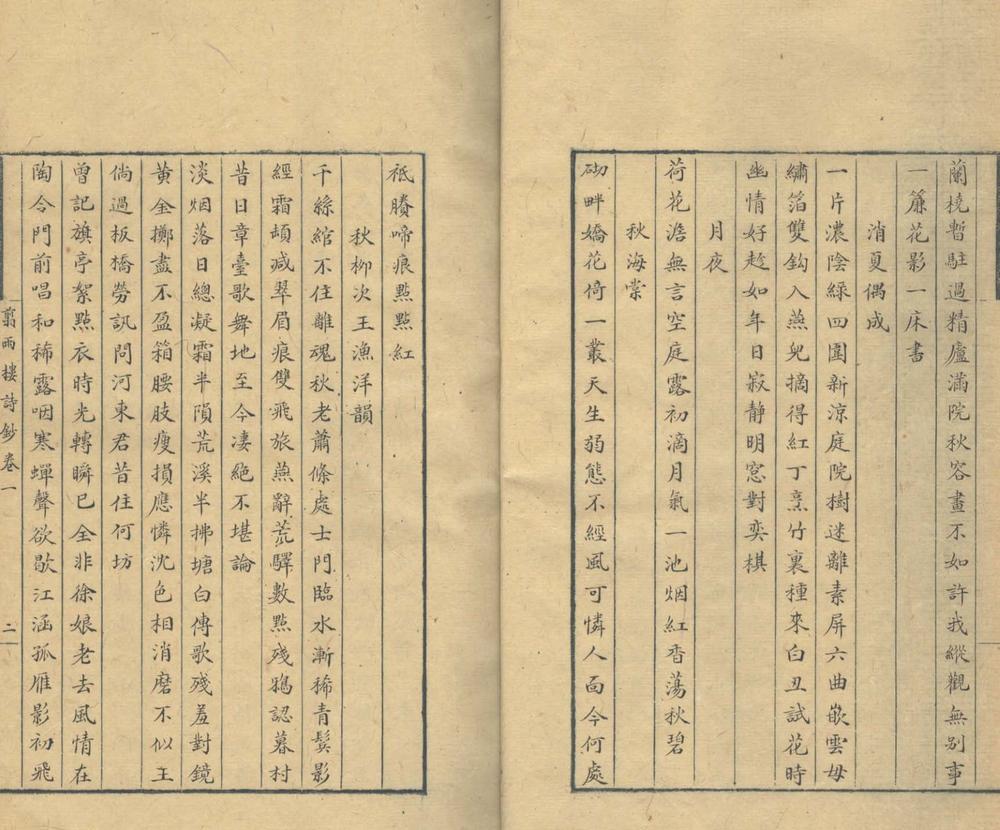 蘭橈暫駐過精廬滿院秋容畫不如許我縱觀無別事
一簾花影一床書
消夏偶成
一片濃陰綠四圍新涼庭院樹迷離素屏六曲嵌雲母
繡箔雙鈎入燕兒摘得紅丁烹竹裏種來白丑試花時
幽情好趁如年日寂静明窓對奕棋
月夜
荷花澹無言空庭露初滴月氣一池烟紅香蕩秋碧
秋海棠
砌畔嬌花倚一叢天生弱態不經風可憐人面今何處
祇賸啼痕點點紅
秋柳次王漁洋韻
千絲綰不住離魂秋老蕭條處士門臨水漸稀青鬂影
經霜頓减翠眉痕雙飛旅燕辭荒驛數點殘鴉認暮村
昔日章臺歌舞地至今凄絕不堪論
淡烟落日總凝霜半隕荒溪半拂塘白傅歌殘羞對鏡
黄金擲盡不盈箱腰肢瘦損應憐沈色相消磨不似王
倘過板橋勞訊問河東君昔住何坊
曾記旗亭絮點衣時光轉瞬已全非徐娘老去風情在
陶令門前唱和稀露咽寒蟬聲欲歇江涵孤雁影初飛
翦雨樓詩鈔卷一
二